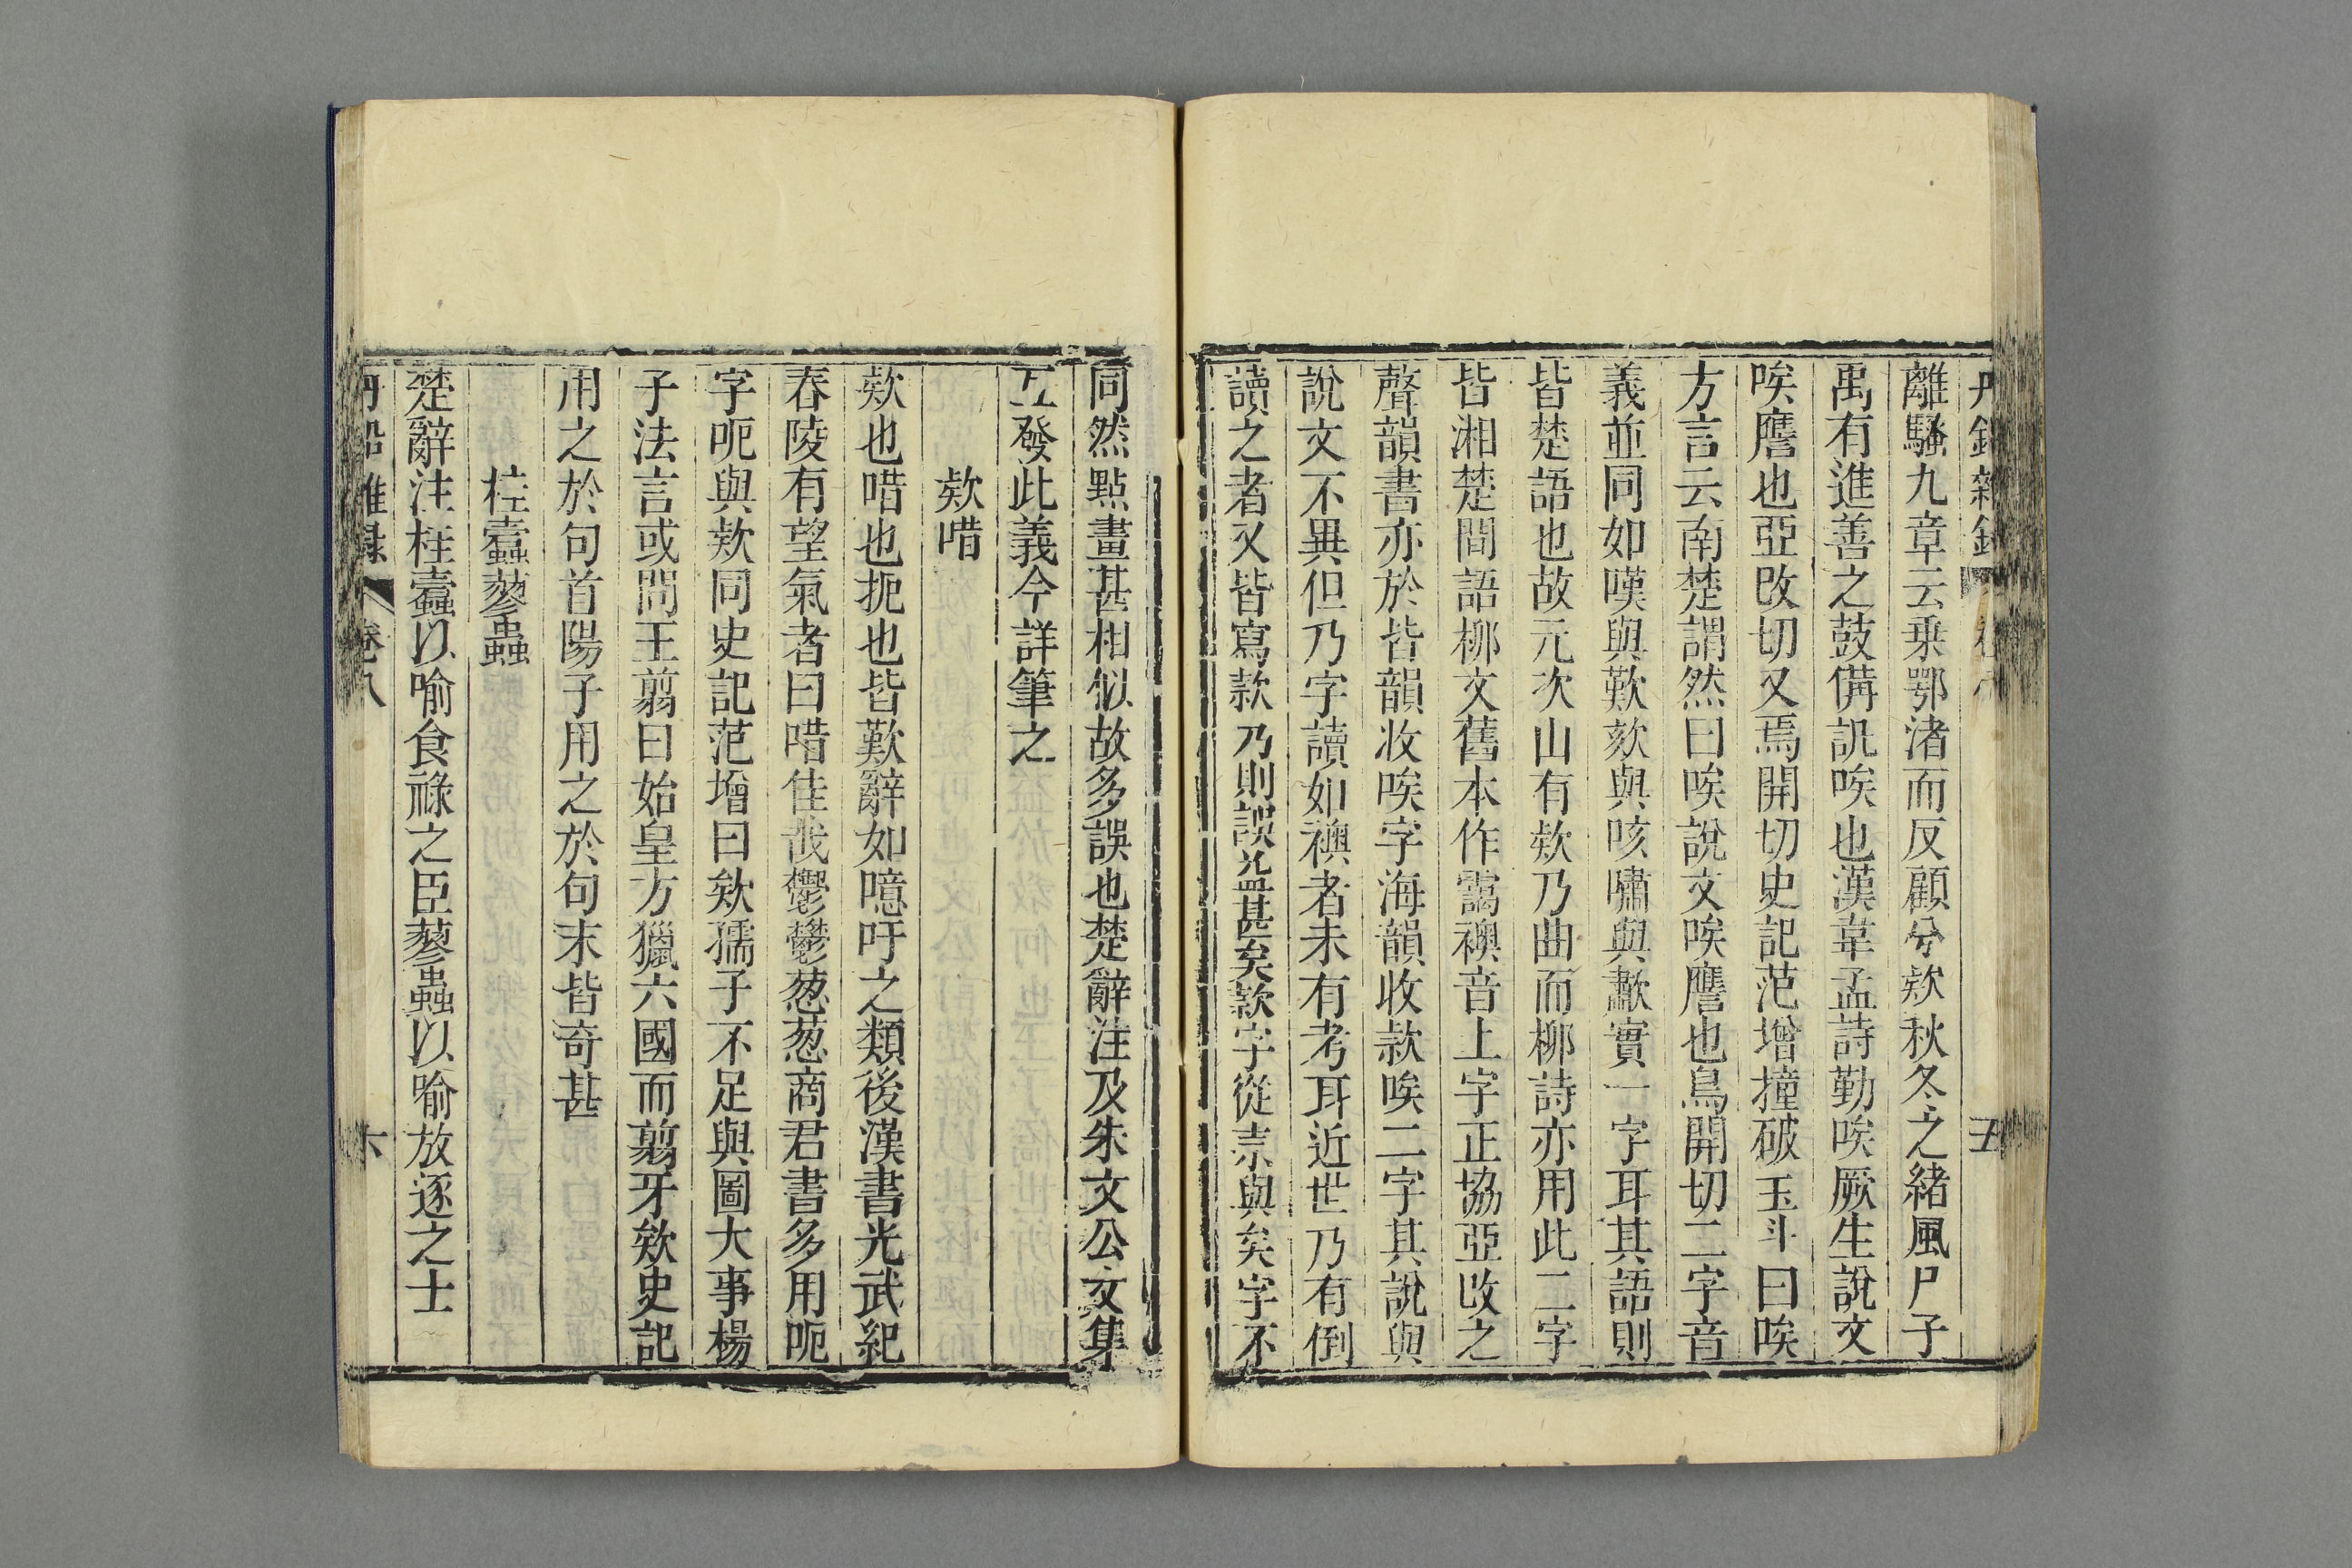 離騷九章云乗鄂渚而反顧兮欸秋冬之緒風尸子
禹有進善之鼓備訊唉也漢韋孟詩勤唉厥生說文
唉譍也亞改切又焉開切史記范增撞破玉斗曰唉
方言云南楚謂然曰唉說文唉譍也烏開切二字音
義並同如嘆與歎欬與咳嘯與歗實一字耳其語則
皆楚語也故元次山有欸乃曲而柳詩亦用此二字
皆湘楚間語柳文舊本作靄襖音上字正協亞改之
聲韻書亦於皆韻收唉字海韻收款唉二字其說與
說文不異但乃字讀如襖者未有考耳近世乃有倒
讀之者又皆寫款乃則誤益甚矣款字從柰與矣字不
同然點畫甚相似故多誤也楚辭注及朱文公文集
互發此義今詳筆之
欸唶
欸也唶也扼也皆歎辭如噫吁之類後漢書光武紀
舂陵有望氣者曰唶佳哉鬱鬱葱葱商君書多用呃
字呃與欸同史記范增曰欸孺子不足與圖大事楊
子法言或問王翦曰始皇方獵六國而翦牙欸史記
用之於句首陽子用之於句末皆奇甚
桂蠹蓼蟲
楚辭注桂蠹以喻食祿之臣蓼蟲以喻放逐之士
卷八
六